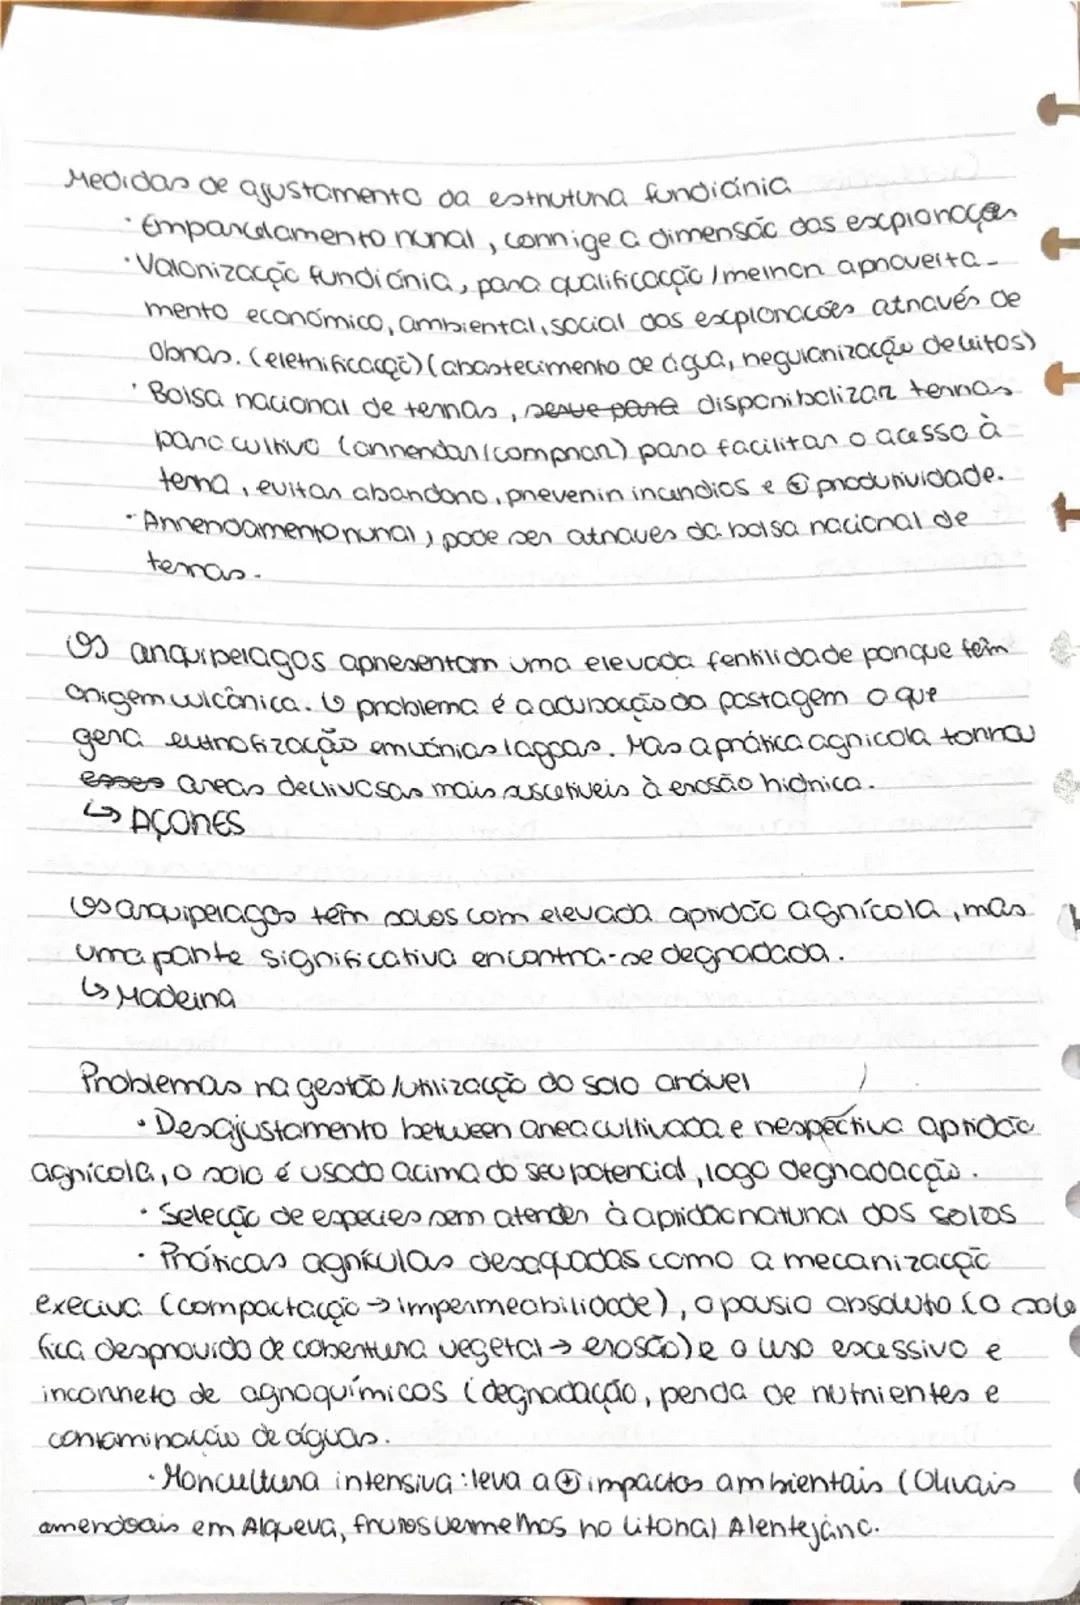 Medidas de ajustamento da estrutura fundiária
· Emparcelamento rural, corrige a dimensão das explorações
· Valorização fundiária, para qualificação/melhor aproveita-
mento económico, ambiental, social das explorações através de
obras. (eletrificação) (abastecimento de água, regularização de leitos)
· Bolsa nacional de terras, serve para disponibolizar terras
para cultivo (arrendar/comprar) para facilitar o acesso à
terra, evitar abandono, prevenir incendios e ⊕ produtividade.
· Arrendamento rural, pode ser atraves da bolsa nacional de
terras.
Os arquipelagos apresentam uma elevada fertilidade porque têm
origem vulcânica. O problema é a ocupação da pastagem o que
gera eutrofização em várias lagoas. Mas a prática agricola tornou
esses areas declivosas mais suscetiveis à erosão hidrica.
↳ AÇORES
Os arquipelagos têm solos com elevada aptidão agrícola, mas
uma parte significativa encontra-se degradada.
↳ Madeira
Problemas na gestão/utilização do solo arável
· Desajustamento between area cultivada e respectiva aptidão
agrícola, o solo é usado acima do seu potencial, logo degradação.
· Seleção de especies sem atender à aptidão natural dos solos
· Práticas agrículas desaquadas como a mecanização
execiva (compactação → impermeabilidade), o pousio absoluto (o solo
fica desprovido de cobertura vegetal → erosão) e o uso excessivo e
incorreto de agroquímicos (degradação, perda de nutrientes e
contaminação de águas.
· Moncultura intensiva: leva a ⊕ impactos ambientais (Olivais
amendoais em Alqueva, frutos vermelhos no litoral Alentejano.